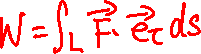 W = ∫_L \vec{F} · \vec{e}_τ ds